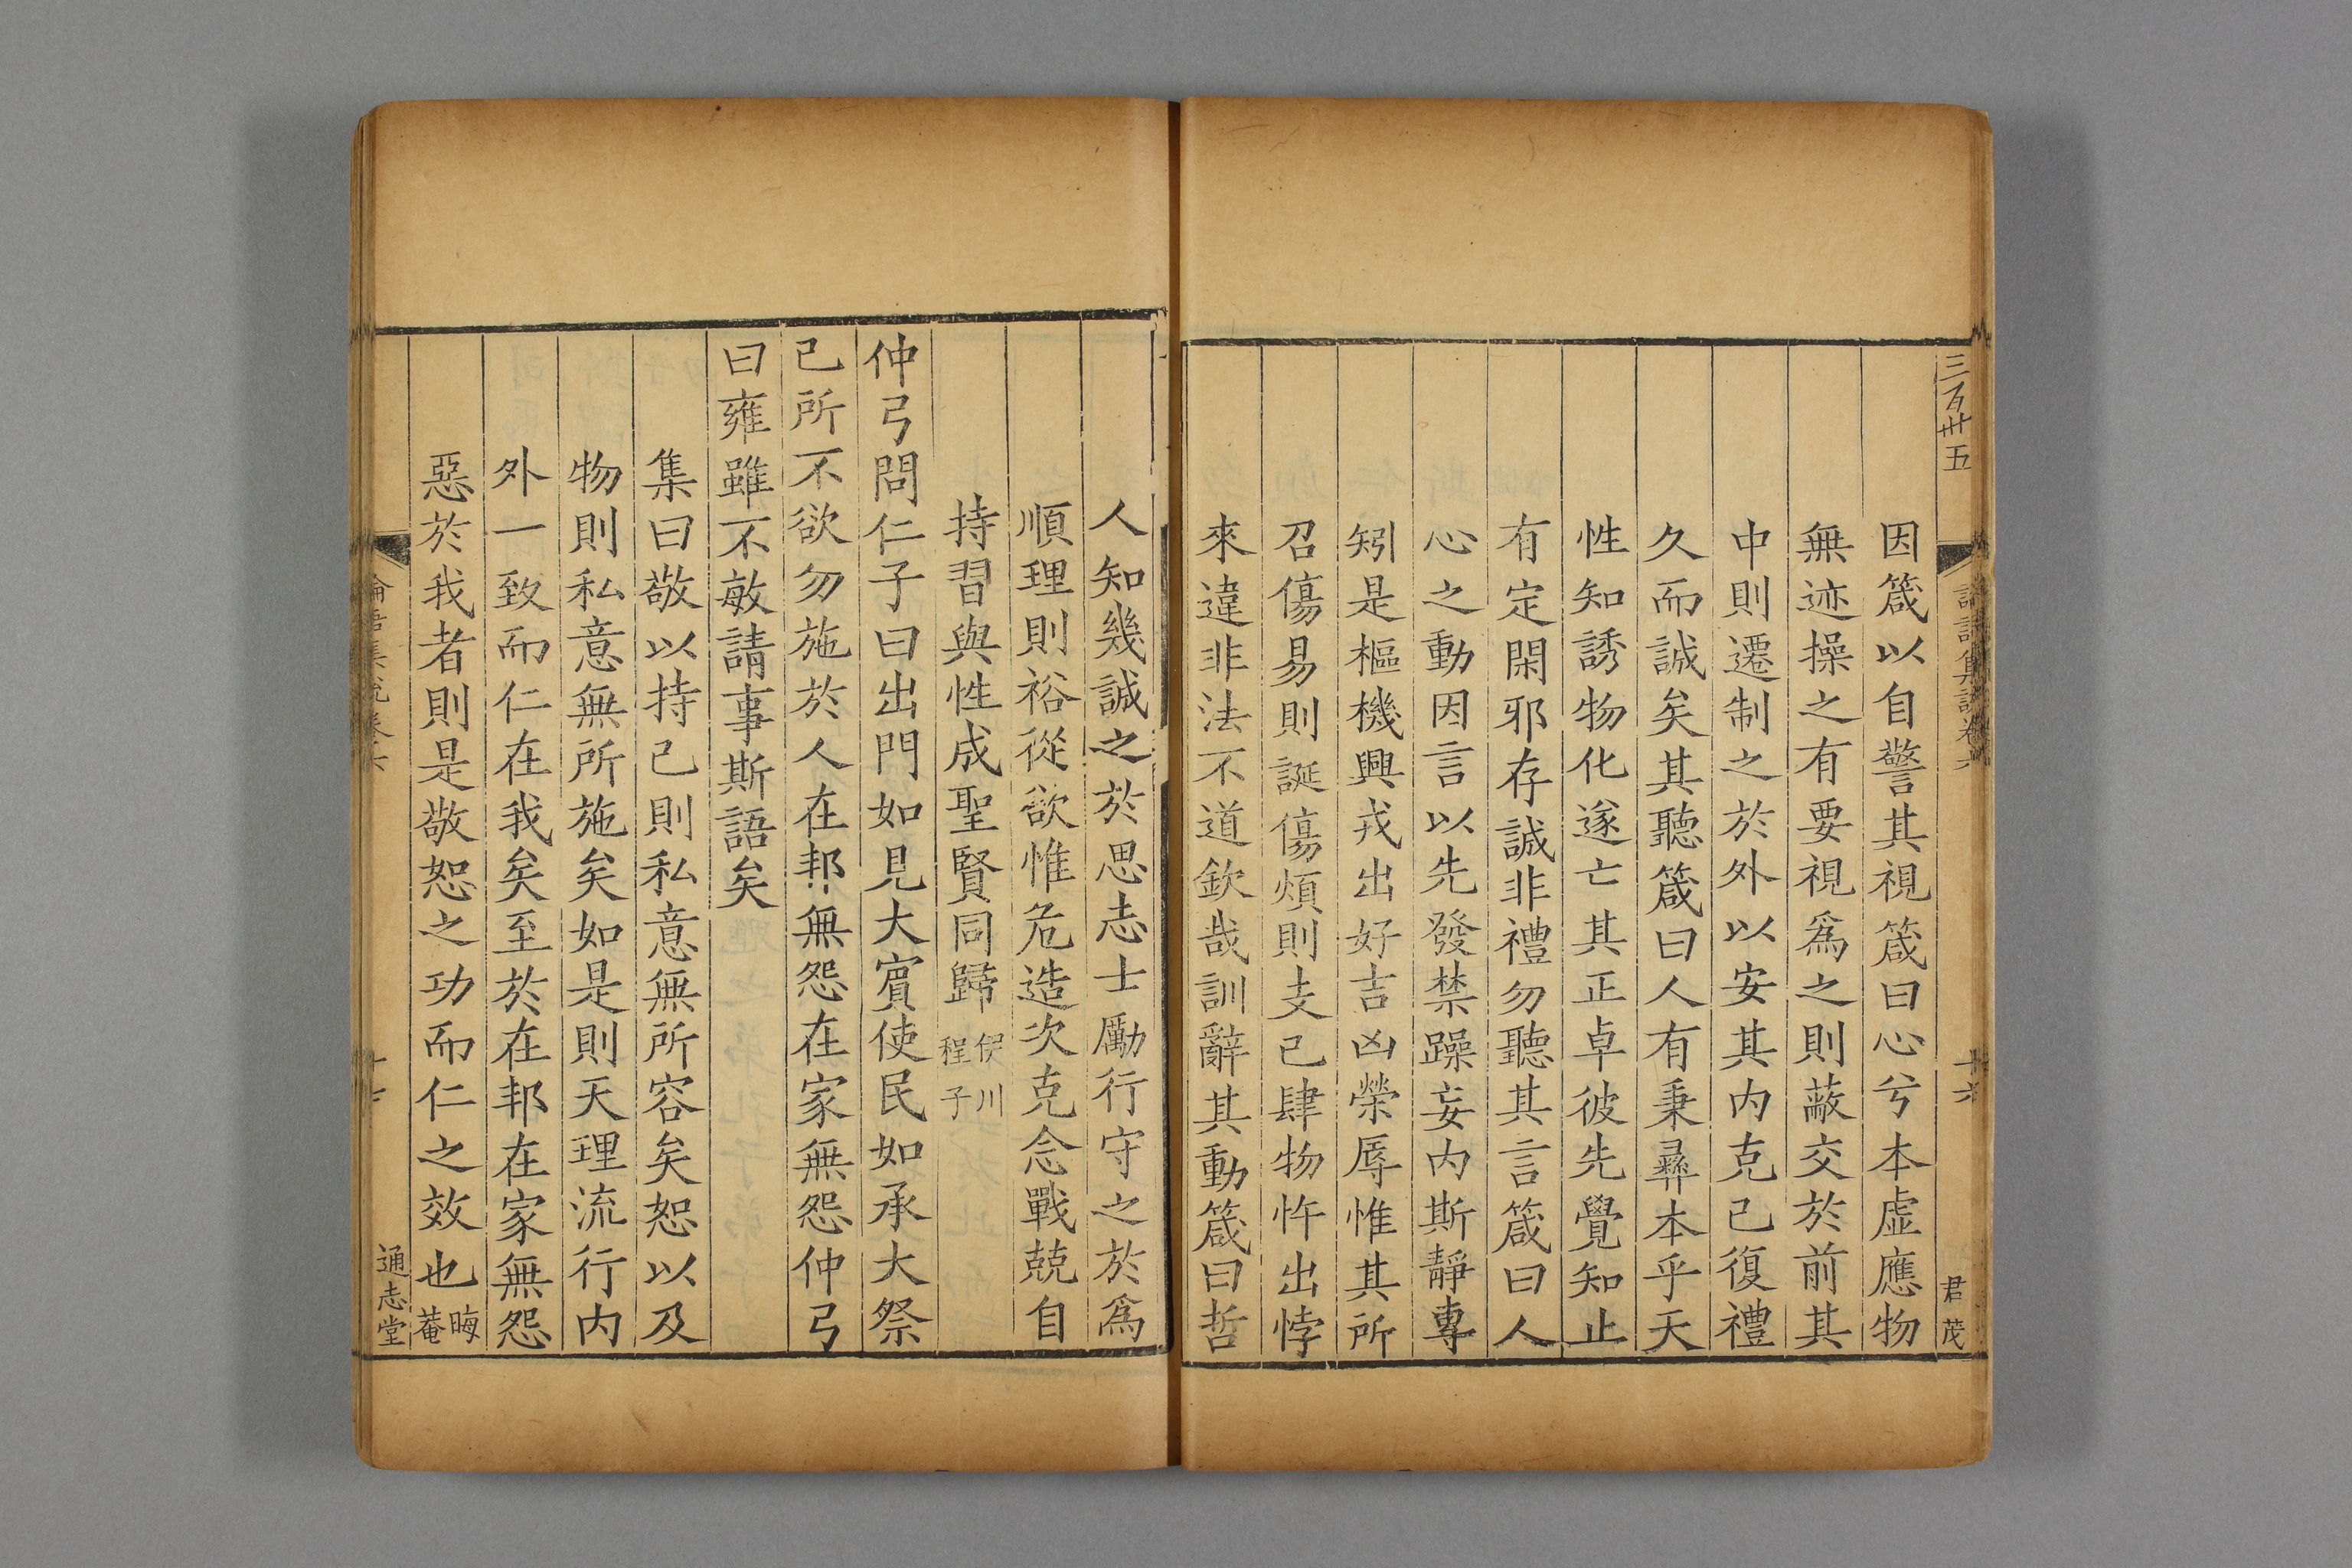 三百卅五
論語集說卷六
十六
君茂
因箴以自警其視箴曰心兮本虛應物
無迹操之有要視爲之則蔽交於前其
中則遷制之於外以安其内克己復禮
久而誠矣其聽箴曰人有秉彛本乎天
性知誘物化遂亡其正卓彼先覺知止
有定閑邪存誠非禮勿聽其言箴曰人
心之動因言以先發禁躁妄内斯靜專
矧是樞機興戎出好吉凶榮辱惟其所
召傷易則誕傷煩則支己肆物忤出悖
來違非法不道欽哉訓辭其動箴曰哲
人知幾誠之於思志士勵行守之於爲
順理則裕從欲惟危造次克念戰兢自
持習與性成聖賢同歸伊川程子
仲弓問仁子曰出門如見大賓使民如承大祭
己所不欲勿施於人在邦無怨在家無怨仲弓
曰雍雖不敏請事斯語矣
集曰敬以持己則私意無所容矣恕以及
物則私意無所施矣如是則天理流行内
外一致而仁在我矣至於在邦在家無怨
惡於我者則是敬恕之功而仁之效也晦菴
論語集說卷六
通志堂